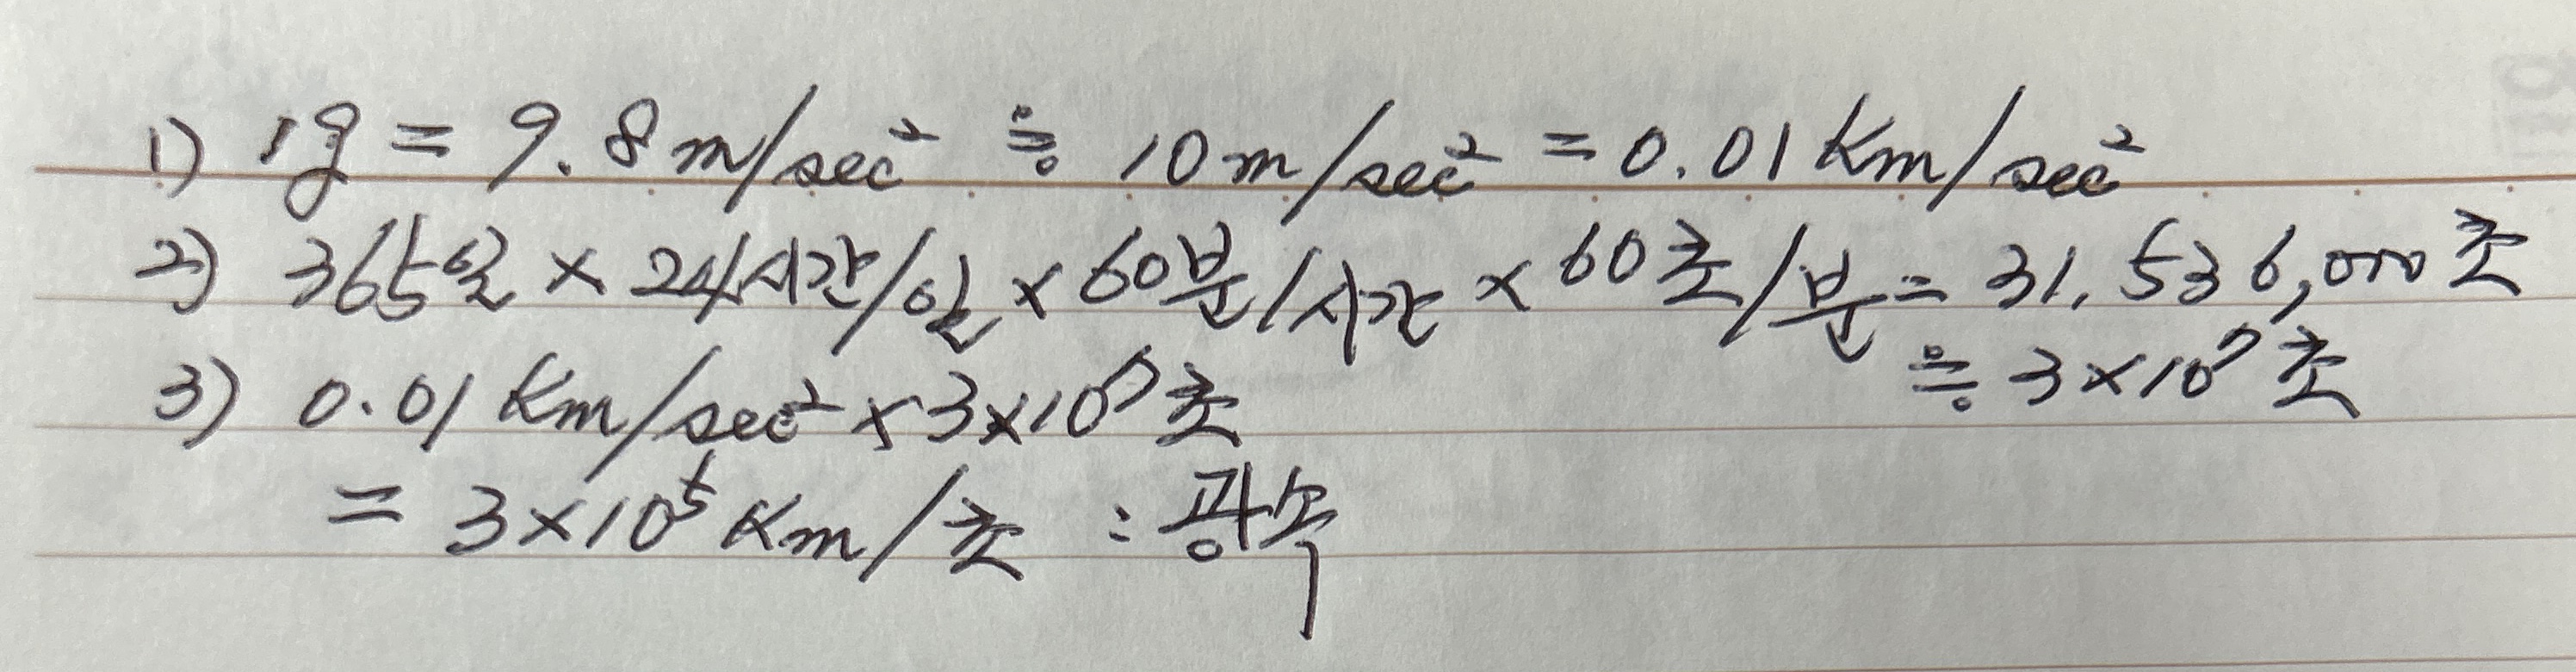 1) 1g = 9.8m/sec² ≒ 10m/sec² = 0.01Km/sec²
2) 365일 × 24시간/일 × 60분/시간 × 60초/분 = 31,536,000초
≒ 3×10⁷초
3) 0.01 Km/sec² × 3×10⁷초
= 3×10⁵ Km/초 : 광속